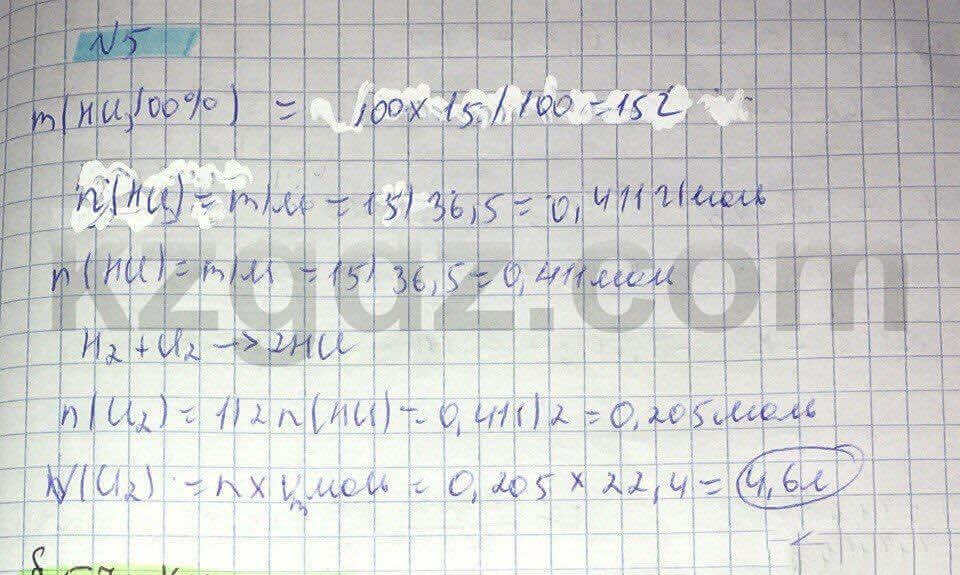 №5
m(HCl,100%) = 100×15/100=15г
n(HCl)=m/M=15/36,5=0,411г/моль
n(HCl)=m/M=15/36,5=0,411моль
H₂+Cl₂→2HCl
n(Cl₂)=1/2n(HCl)=0,411/2=0,205моль
V(Cl₂)=n×Vmоль=0,205×22,4=4,6л
kzgdz.com